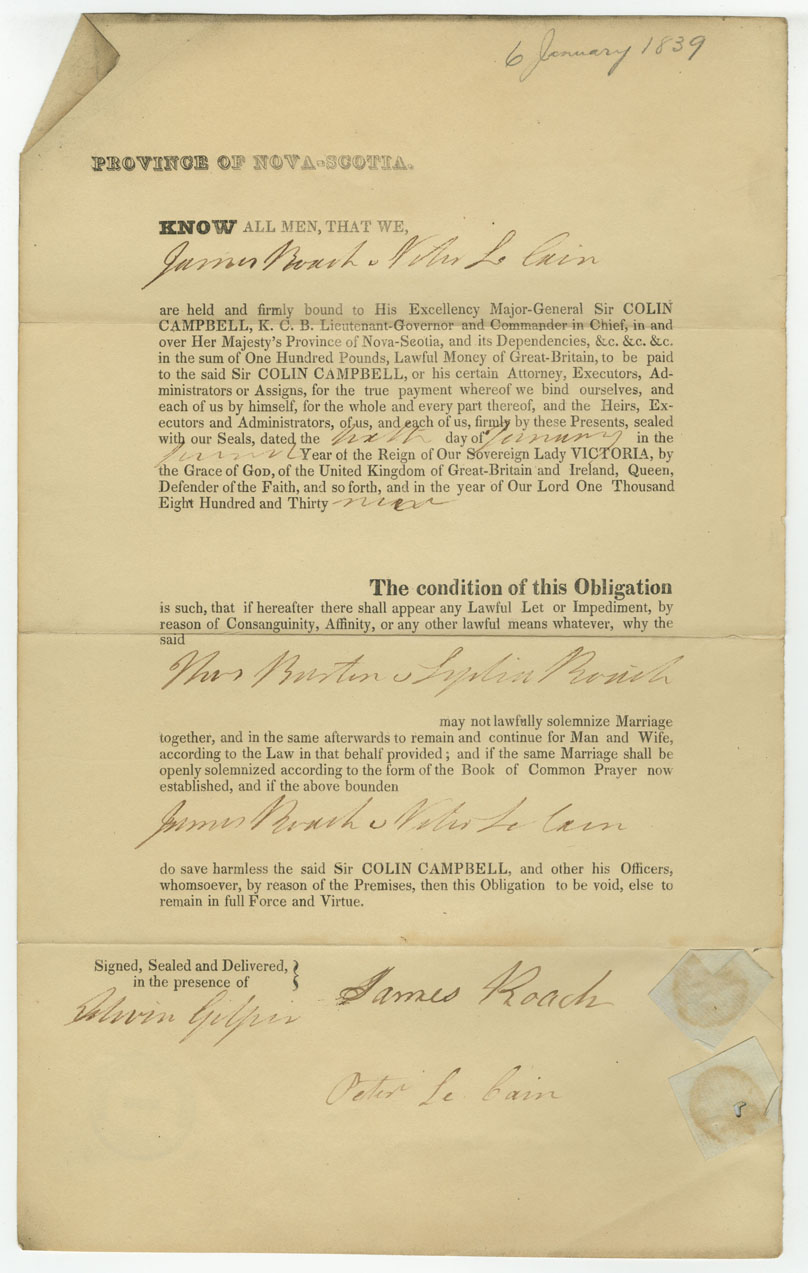 6 January 1839
PROVINCE OF NOVA-SCOTIA.
KNOW ALL MEN, THAT WE,
James Roach & Peter Le Cain
are held and firmly bound to His Excellency Major-General Sir COLIN
CAMPBELL, K. C. B. Lieutenant-Governor and Commander in Chief, in and
over Her Majesty's Province of Nova-Scotia, and its Dependencies, &c. &c. &c.
in the sum of One Hundred Pounds, Lawful Money of Great-Britain, to be paid
to the said Sir COLIN CAMPBELL, or his certain Attorney, Executors, Ad-
ministrators or Assigns, for the true payment whereof we bind ourselves, and
each of us by himself, for the whole and every part thereof, and the Heirs, Ex-
ecutors and Administrators, of us, and each of us, firmly by these Presents, sealed
with our Seals, dated the sixth day of January in the
second Year of the Reign of Our Sovereign Lady VICTORIA, by
the Grace of GOD, of the United Kingdom of Great-Britain and Ireland, Queen,
Defender of the Faith, and so forth, and in the year of Our Lord One Thousand
Eight Hundred and Thirty nine
The condition of this Obligation
is such, that if hereafter there shall appear any Lawful Let or Impediment, by
reason of Consanguinity, Affinity, or any other lawful means whatever, why the
said
Thos Burton & Lydia Roach
may not lawfully solemnize Marriage
together, and in the same afterwards to remain and continue for Man and Wife,
according to the Law in that behalf provided; and if the same Marriage shall be
openly solemnized according to the form of the Book of Common Prayer now
established, and if the above bounden
James Roach & Peter Le Cain
do save harmless the said Sir COLIN CAMPBELL, and other his Officers,
whomsoever, by reason of the Premises, then this Obligation to be void, else to
remain in full Force and Virtue.
Signed, Sealed and Delivered,
in the presence of
Edwin Gilpin
James Roach
Peter Le Cain